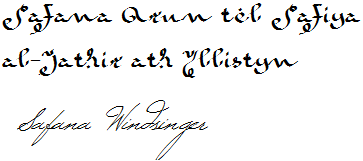 Safana Arun tel Safiya
al-Jathir ath Yllistyn
Safana Windsinger